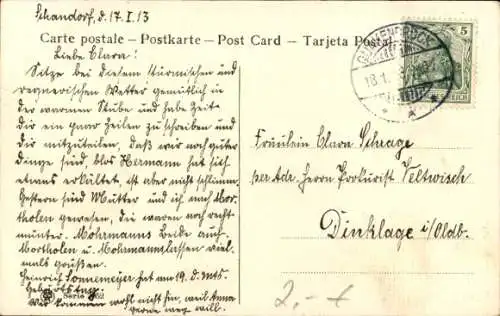 Schandorf, d. 17. I. 13
Carte postale – Postkarte – Post Card – Tarjeta Postal
Liebe Clara!
Sitze bei diesem stürmischen und
regnerischen Wetter gemütlich in
der warmen Stube und habe Zeit
dir ein paar Zeilen zu schreiben und
dir mitzuteilen, daß wir noch guter
dinge sind blos Hermann hat sich
etwas erkältet, ist aber nicht schlimm.
Gestern sind Mutter und ich nach Mor-
tholen gewesen, die waren noch recht
munter. Mohrmanns Beide auf
Mortholen u. Mohrmannslassen viel-
mals grüßen.
Heinrich Sonnemeyer hat am 19. d. Mts.
Geburtstag.
Wir kommen wohl nicht hin, weil Anna
gerne weg will.
Serie
5
REICH
18.1.
Fräulein Clara Schrage
per Adr. Herrn Prokurist Veltwisch
Dinklage i/Oldb.
2,- €